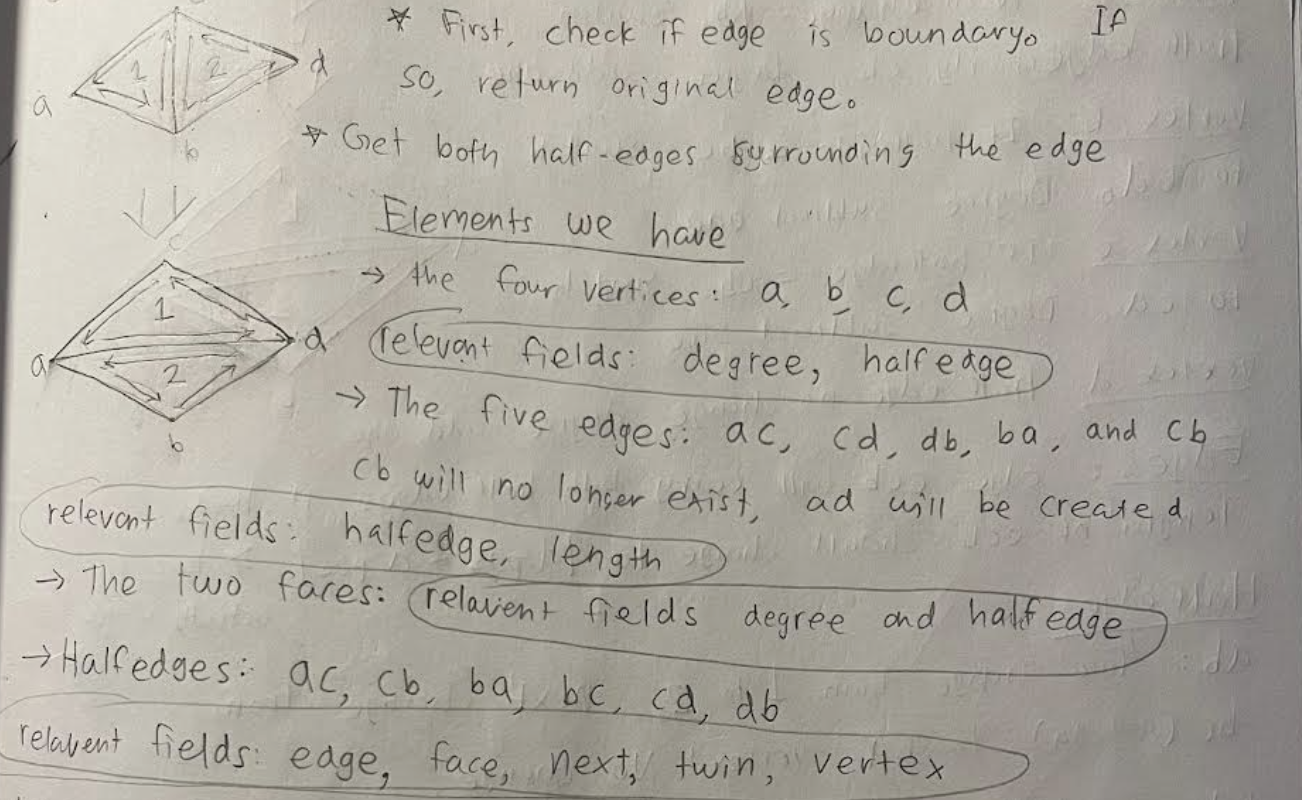 * First, check if edge is boundary. If
so, return original edge.
* Get both half-edges surrounding the edge
Elements we have
→ the four vertices: a, b, c, d
relevant fields: degree, halfedge
→ The five edges: ac, cd, db, ba, and cb
cb will no longer exist, ad will be created
relevant fields: halfedge, length
→ The two faces: relavent fields degree and halfedge
→ Halfedges: ac, cb, ba, bc, cd, db
relavent fields: edge, face, next, twin, vertex
a
1
2
d
b
c
a
1
2
d
b